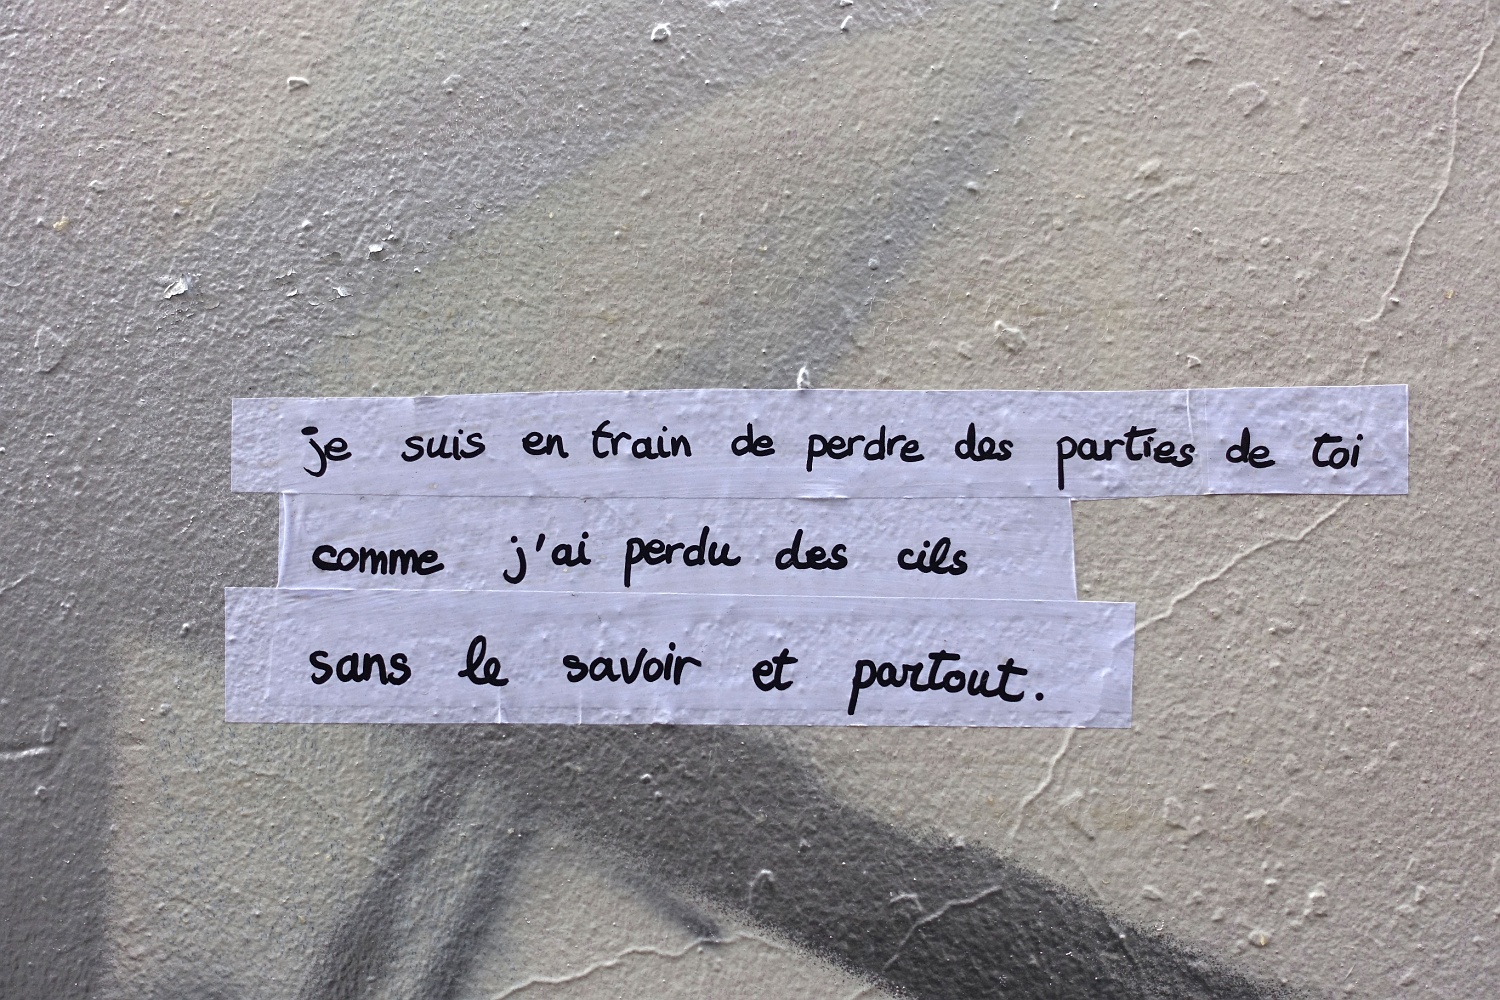 je suis en train de perdre des parties de toi
comme j'ai perdu des cils
sans le savoir et partout.